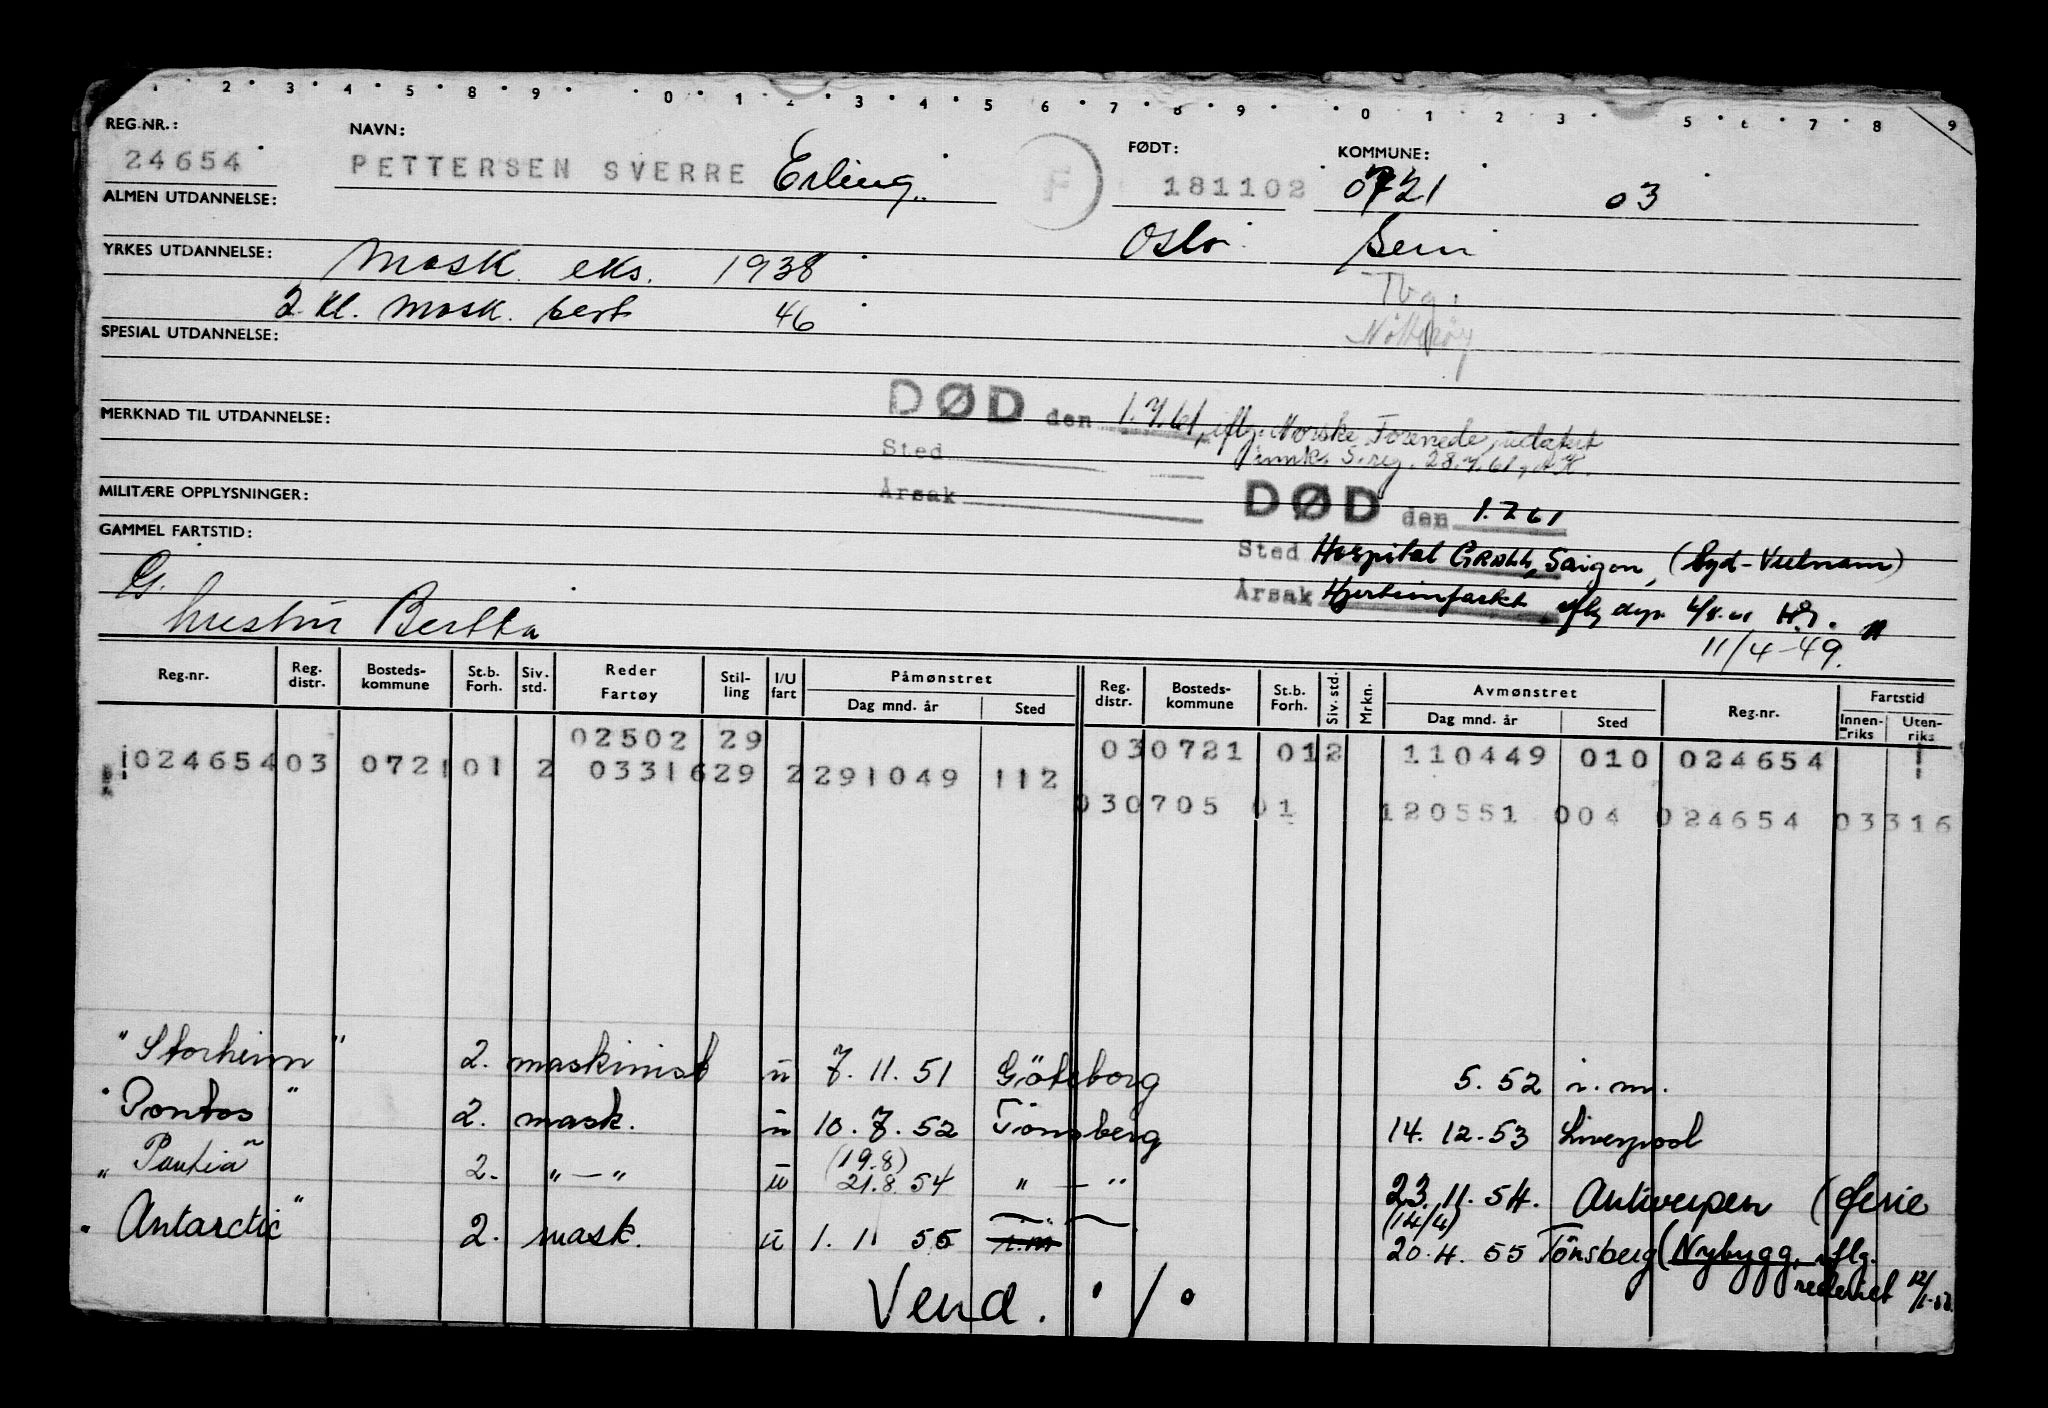 2 3 4 5 8 9 0 1 2 3 4 5 6 7 8 9 0 1 2 3 5 6 7 8 9
REG.NR.: NAVN: FØDT: KOMMUNE:
24654 PETTERSEN SVERRE Erling F 181102 0721 03
ALMEN UTDANNELSE:
Oslo Sem
YRKES UTDANNELSE: Mask. eks. 1938
Tbg.
2. kl. mask. sert 46
Nøtterøy
SPESIAL UTDANNELSE:
DØD den 1.7.61, iflg. Norske Forenede,
MERKNAD TIL UTDANNELSE:
Sted S.reg. 28.7.61,
MILITÆRE OPPLYSNINGER:
Årsak
DØD den 1.7.61
GAMMEL FARTSTID:
Sted Hospital GRALL, Saigon, (Syd-Vietnam)
G. Årsak Hjerteinfarkt iflg
hustru Bertha
11/4-49.
Reg.nr. Reg. distr. Bosteds-kommune St.b. Forh. Siv. std. Reder Fartøy Stil-ling I/U fart Påmønstret Dag mnd. år Sted Reg. distr. Bosteds-kommune St.b. Forh. Siv. std. Mrkn. Avmønstret Dag mnd. år Sted Reg.nr. Fartstid Innen-riks Uten-riks
02502 29 030721 012 110449 010 024654
024654 03 0721 01 2 03316 29 2 291049 112
030705 01 120551 004 024654 03316
"Storheim" 2. maskinist u 7. 11. 51 Göteborg 5. 52 i. m.
"Pontos" 2. mask. u 10. 7. 52 Tönsberg 14. 12. 53 Liverpool
(19.8)
" " 2. " — " u 21.8. 54 " — " 23. 11. 54. Antwerpen (ferie
(14/4)
"Antarctic" 2. mask. u 1. 1 55 i.m 20. 4. 55 Tönsberg (Nybygg, iflg.
rederiet
Vend. • / •